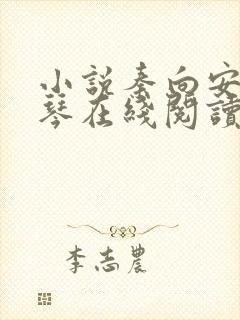 小説秦向安
琴在綫閲讀
李志農